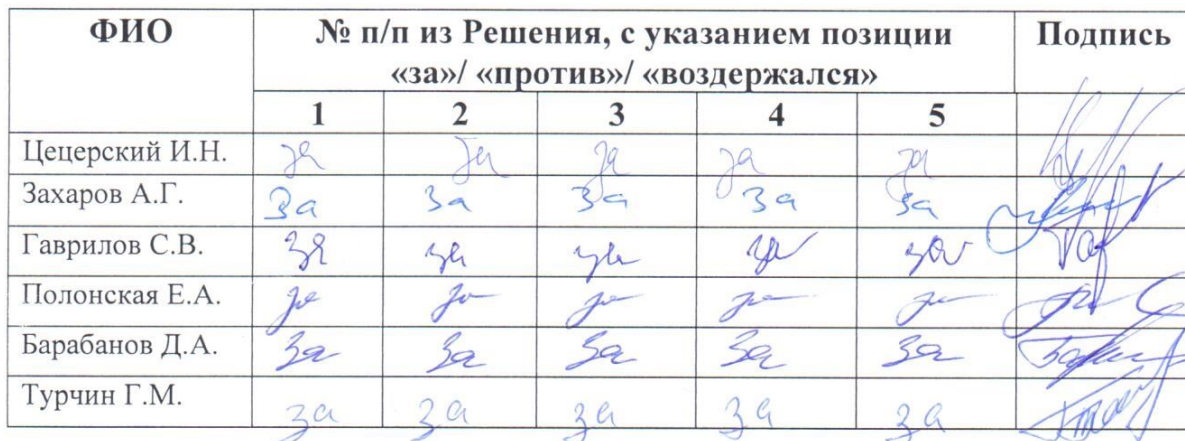 ФИО № п/п из Решения, с указанием позиции Подпись
«за»/ «против»/ «воздержался»
1 2 3 4 5
Цецерский И.Н. за за за за за
Захаров А.Г. За За За За За
Гаврилов С.В. за за за за за
Полонская Е.А. за за за за за
Барабанов Д.А. За За За За За
Турчин Г.М. за за за за за